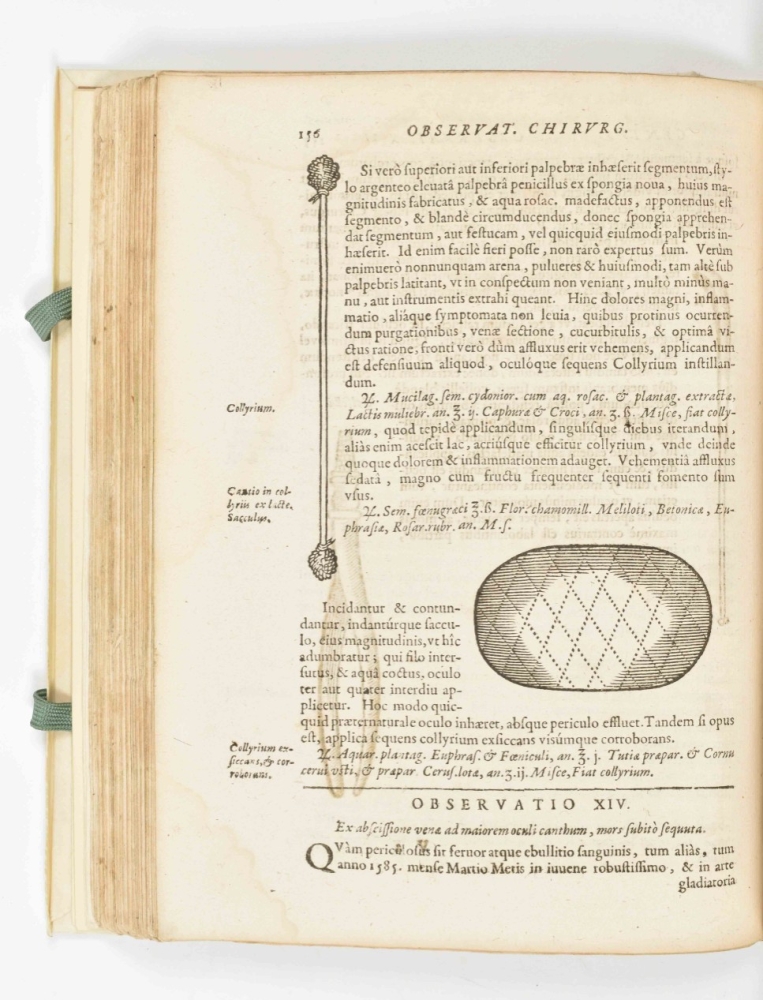 156
OBSERVAT. CHIRVRG.
Si verò ſuperiori aut inferiori palpebræ inhæſerit ſegmentum, ſty-
lo argenteo eleuatâ palpebrâ penicillus ex ſpongia noua, huius ma-
gnitudinis fabricatus, & aqua roſac. madefactus, apponendus eſt
ſegmento, & blandè circumducendus, donec ſpongia apprehen-
dat ſegmentum, aut feſtucam, vel quicquid eiuſmodi palpebris in-
hæſerit. Id enim facilè fieri poſſe, non rarò expertus ſum. Verùm
enimuerò nonnunquam arena, pulueres & huiuſmodi, tam altè ſub
palpebris latitant, vt in conſpectum non veniant, multò minùs ma-
nu, aut inſtrumentis extrahi queant. Hinc dolores magni, inflam-
matio, aliáque ſymptomata non leuia, quibus protinus occurren-
dum purgationibus, venæ ſectione, cucurbitulis, & optimâ vi-
ctus ratione, fronti verò dùm affluxus erit vehemens, applicandum
eſt defenſiuum aliquod, oculóque ſequens Collyrium inſtillan-
dum.
Collyrium.
♃. Mucilag. ſem. cydonior. cum aq. roſac. & plantag. extractæ,
Lactis muliebr. an. ℥. ij. Caphuræ & Croci, an. ʒ. ß. Miſce, fiat colly-
rium, quod tepidè applicandum, ſinguliſque diebus iterandum,
aliàs enim aceſcit lac, acriúſque efficitur collyrium, vnde deinde
quoque dolorem & inflammationem adauget. Vehementiâ affluxus
ſedatâ, magno cum fructu frequenter ſequenti fomento ſum
vſus.
Cautio in col-
lyriis ex lacte.
Sacculus.
♃. Sem. fœnugræci ℥.ß. Flor. chamomill. Meliloti, Betonicæ, Eu-
phraſiæ, Roſar. rubr. an. M. ſ.
Incidantur & contun-
dantur, indantúrque ſaccu-
lo, eius magnitudinis, vt hîc
adumbratur; qui filo inter-
ſutus, & aquâ coctus, oculo
ter aut quater interdiu ap-
plicetur. Hoc modo quic-
quid præternaturale oculo inhæret, abſque periculo effluet. Tandem ſi opus
eſt, applica ſequens collyrium exſiccans viſúmque corroborans.
Collyrium ex-
ſiccans, & cor-
roborans.
♃. Aquar. plantag. Euphraſ. & Fœniculi, an. ℥. j. Tutiæ præpar. & Cornu
cerui vſti, & præpar. Ceruſ. lotæ, an. ʒ. ij. Miſce, Fiat collyrium.
OBSERVATIO XIV.
Ex abſciſſione venæ ad maiorem oculi canthum, mors ſubitò ſequuta.
QVàm periculoſus ſit feruor atque ebullitio ſanguinis, tum aliàs, tum
anno 1585. menſe Martio Metis in iuuene robuſtiſſimo, & in arte
gladiatoria